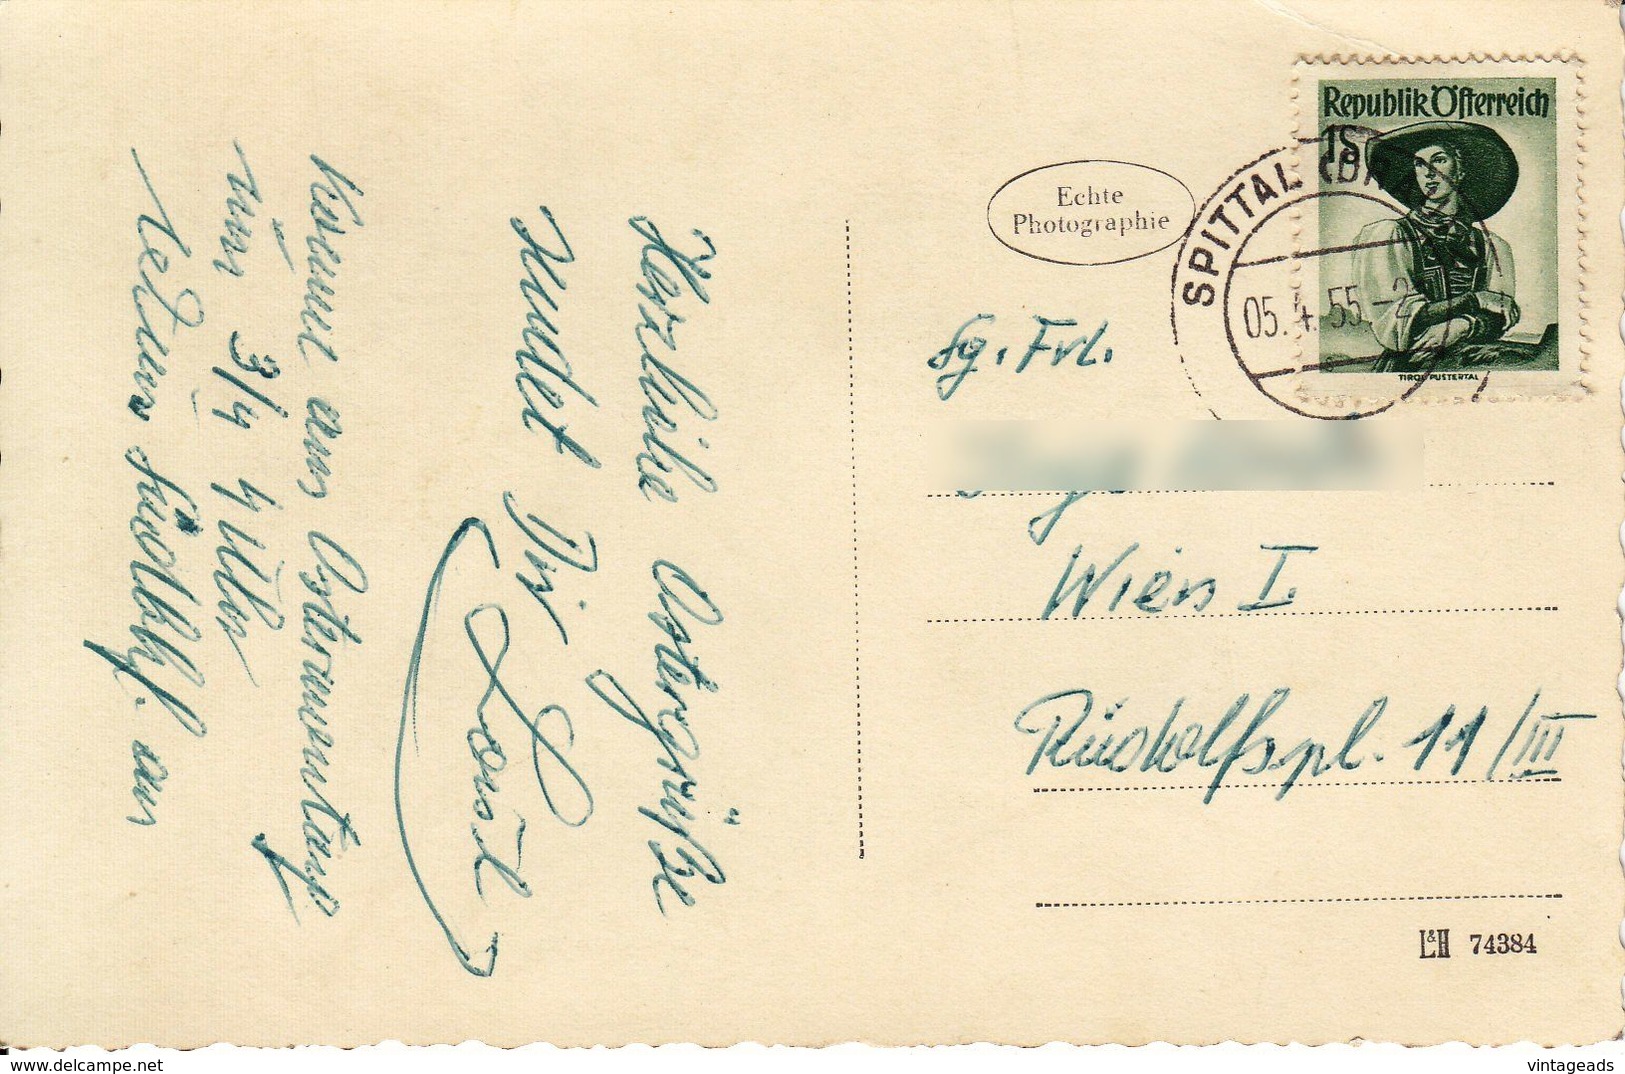 Herzliche Ostergrüße
sendet Dir
Loisl
komme am Ostermontag
um 3/4 4 Uhr
Südbhf. an
Echte
Photographie
Republik Österreich
1S
TIROL PUSTERTAL
SPITTAL (DR
05.4.55.-2
Sg. Frl.
Wien I.
Rudolfspl. 11/III
L&H 74384
delcampe.net
vintageads